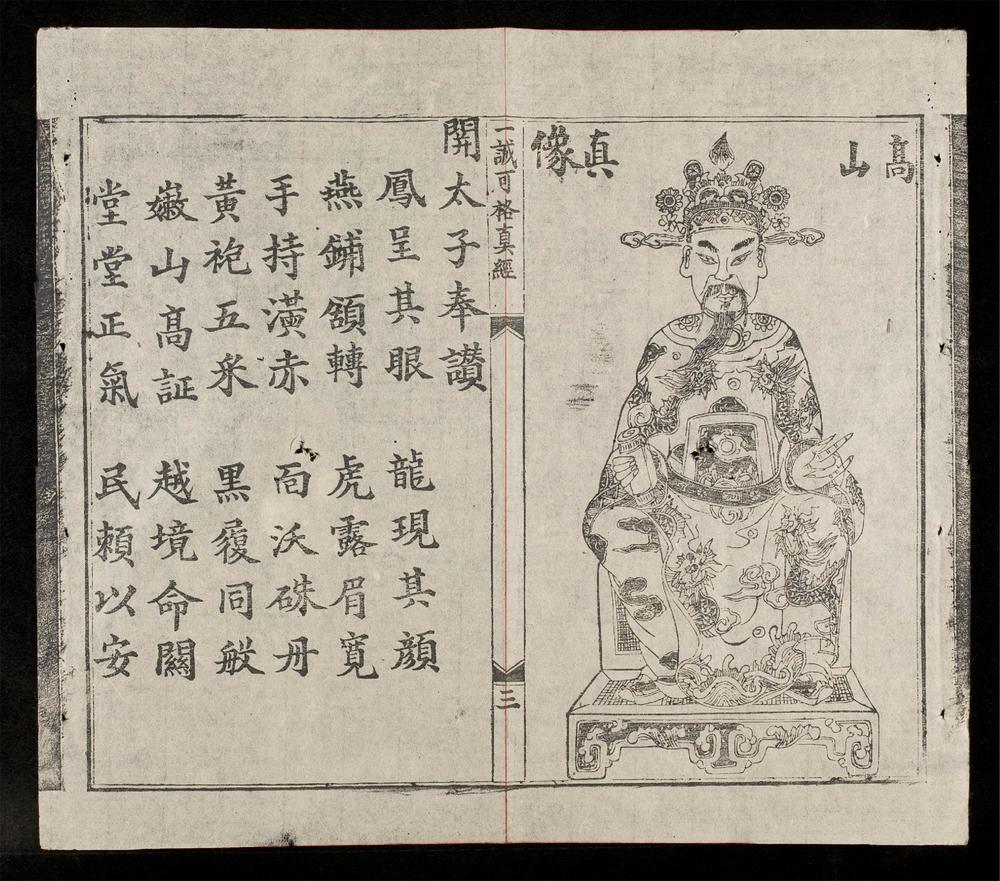 高山
真像
一誠可格真經
三
開太子奉讃
鳳呈其眼 龍現其顏
燕鋪頷轉 虎露眉寬
手持潢赤 面沃硃丹
黃袍五采 黑履同般
嫩山高証 越境命關
堂堂正氣 民頼以安